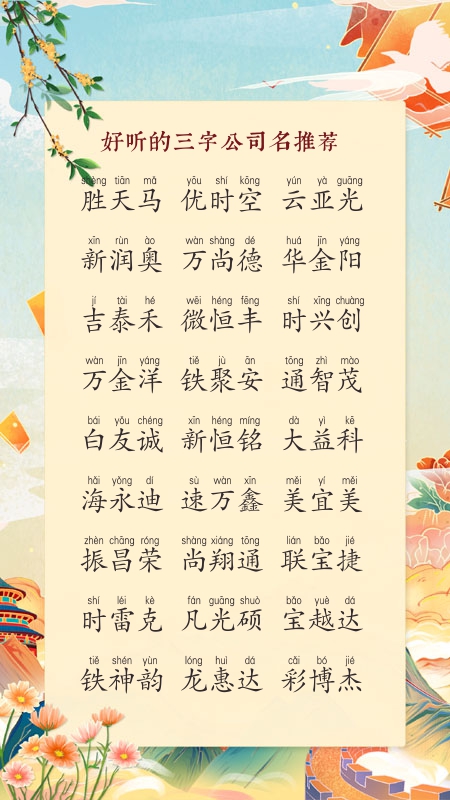 好听的三字公司名推荐
shèng tiān mǎ yōu shí kōng yún yà guāng
胜天马 优时空 云亚光
xīn rùn ào wàn shàng dé huá jīn yáng
新润奥 万尚德 华金阳
jí tài hé wēi héng fēng shí xīng chuàng
吉泰禾 微恒丰 时兴创
wàn jīn yáng tiě jù ān tōng zhì mào
万金洋 铁聚安 通智茂
bái yǒu chéng xīn héng míng dà yì kē
白友诚 新恒铭 大益科
hǎi yǒng dí sù wàn xīn měi yí měi
海永迪 速万鑫 美宜美
zhèn chāng róng shàng xiáng tōng lián bǎo jié
振昌荣 尚翔通 联宝捷
shí léi kè fán guāng shuò bǎo yuè dá
时雷克 凡光硕 宝越达
tiě shén yùn lóng huì dá cǎi bó jié
铁神韵 龙惠达 彩博杰